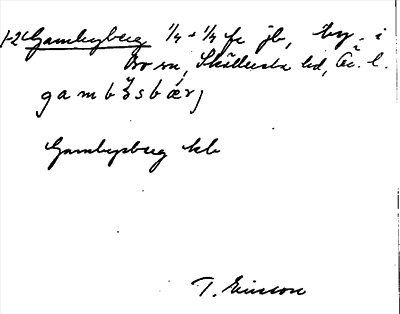 1-2 Gambyberg 1/4 + 1/4 fr jb, by. i
Bo sn, Skölersta hd, Ör. l.
gambýsbærj
Gambysberg kb
T. Ericsson